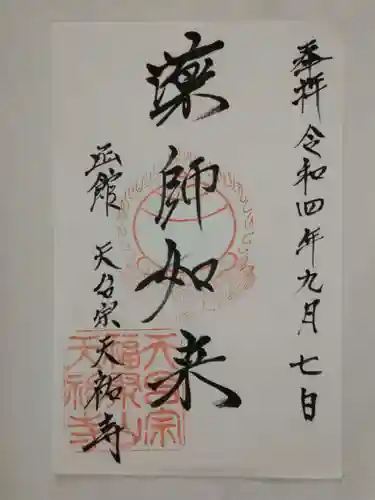 奉拝 令和四年九月七日
薬師如来
函館 天台宗天祐寺
天台宗
福聚山
天祐寺